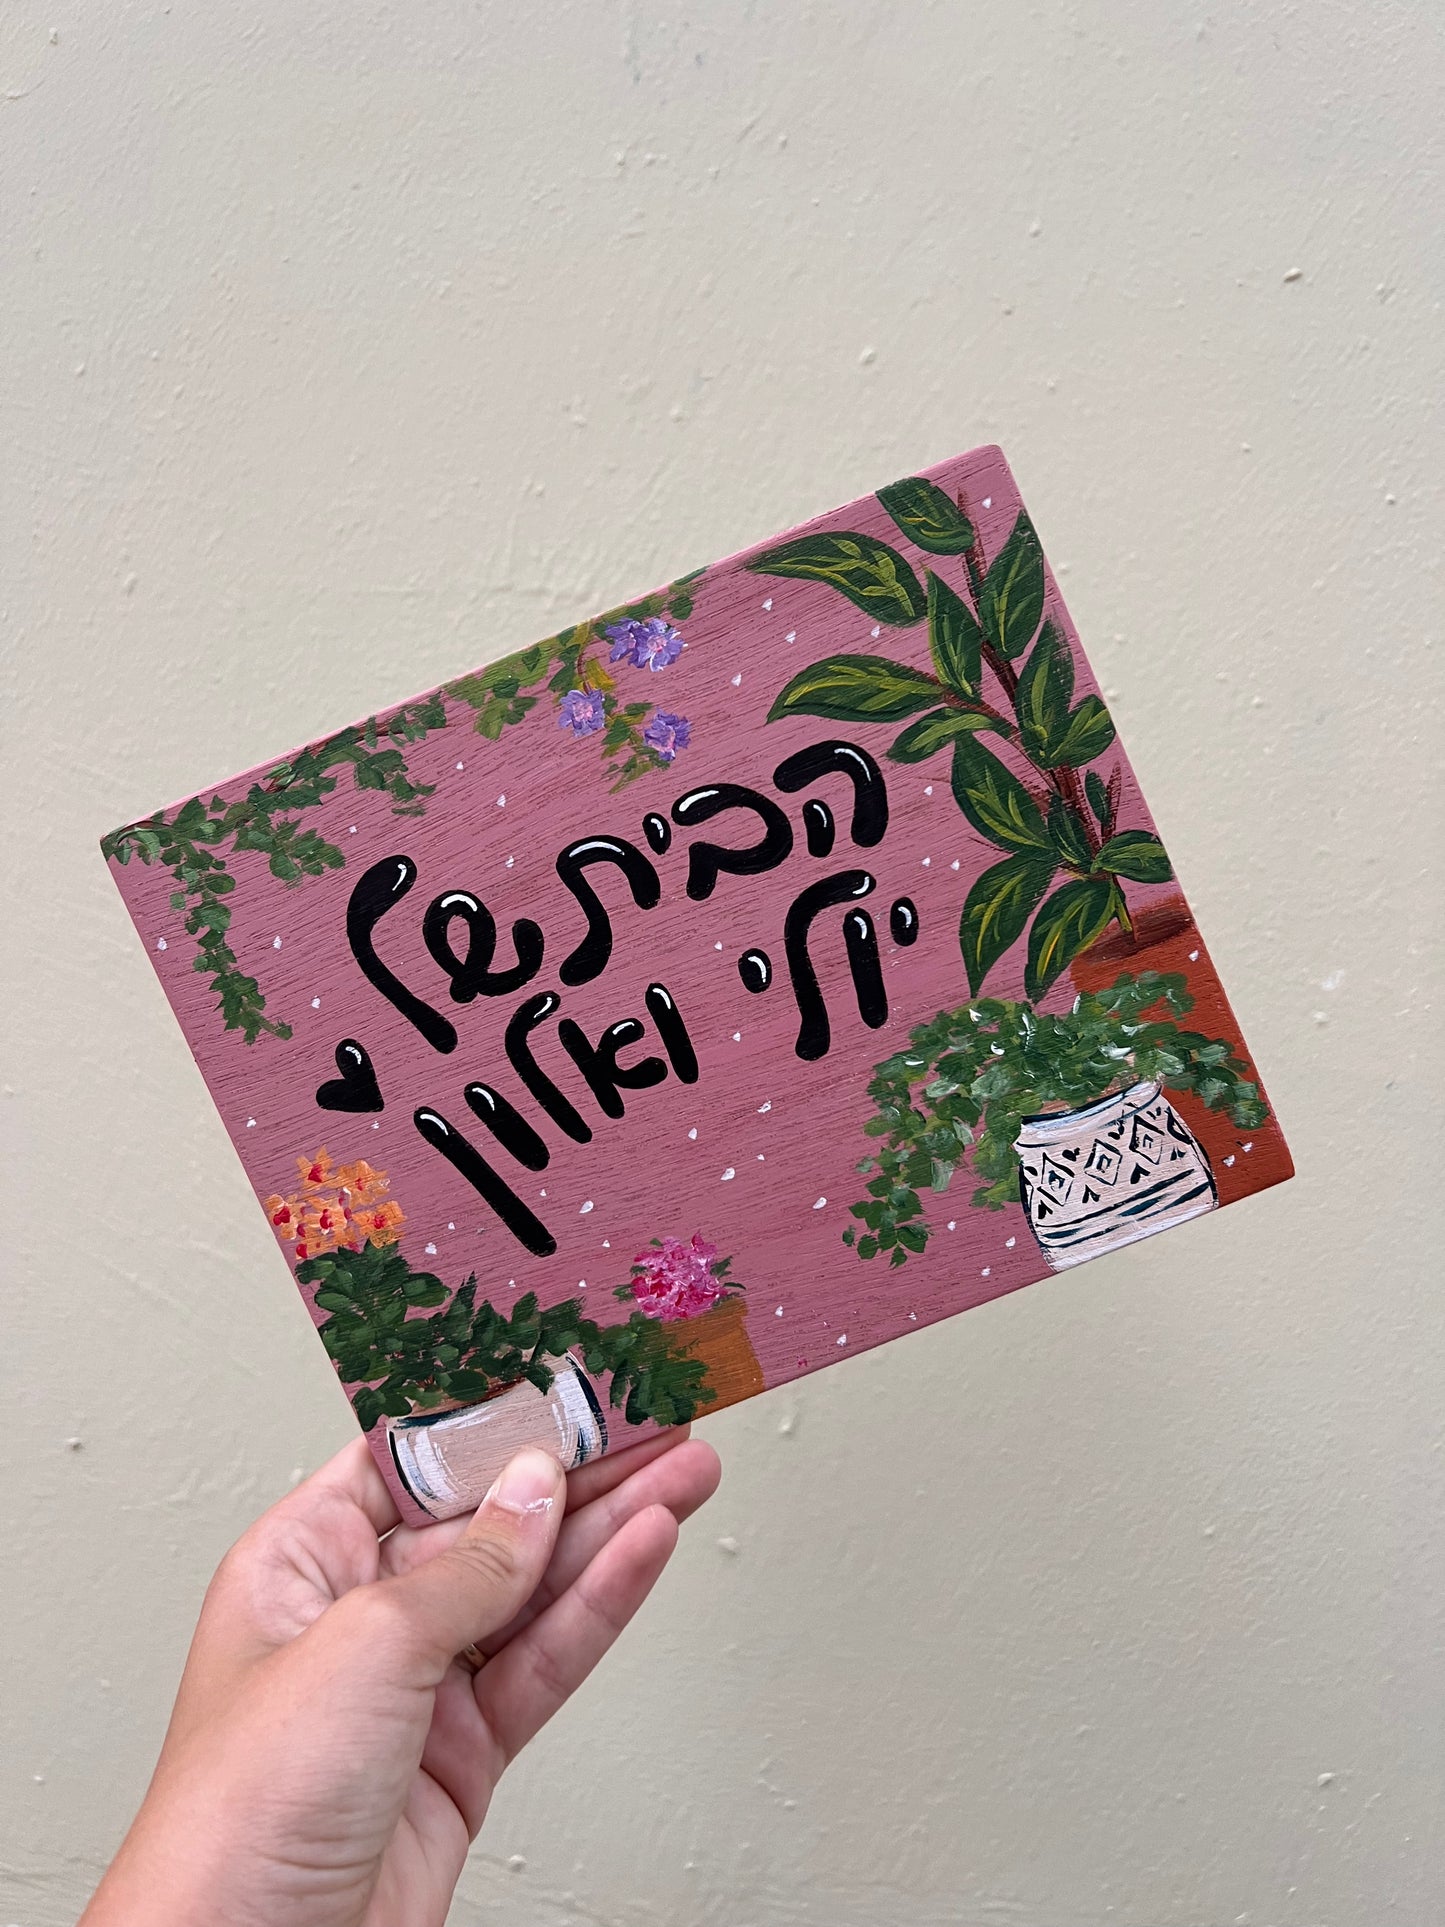 הבית של
יולי ואלון